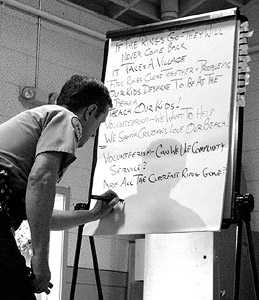 IF THE RINGS GO-THEY WILL
NEVER COME BACK
IT TAKES A VILLAGE
FULL RIVER COME TOGETHER-PROBLEMS
OUR KIDS DESERVE TO BE AT THE
BEACH
BEACH OUR KIDS!
VOLUNTEERISM-WE WANT TO HELP
WE SANTA CRUZANS LOVE OUR BEACH
VOLUNTEERISM-CAN WE USE COMMUNITY
SERVICE?
ARE ALL THE CURRENT RINGS GONE?